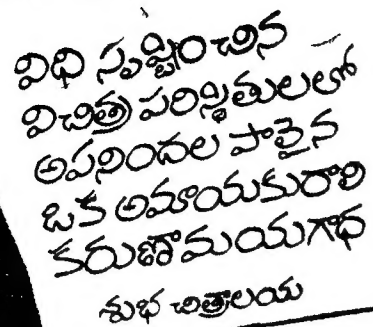 విధి సృష్టించిన
విచిత్ర పరిస్థితులలో
అపనిందల పాలైన
ఒక అమాయకురాలి
కరుణామయగాధ
శుభ చిత్రాలయ